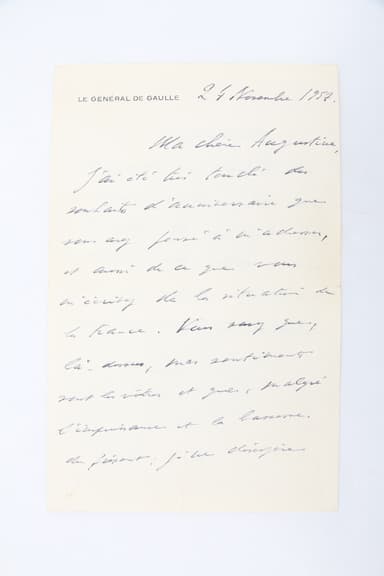 LE GÉNÉRAL DE GAULLE 24 Novembre 1952.
Ma chère Augustine,
J'ai été très touché des
souhaits d'anniversaire que
vous avez pensé à m'adresser,
et aussi de ce que vous
m'écrivez de la situation de
la France. Vous savez que,
là-dessus, mes sentiments
sont les vôtres et que, malgré
l'impuissance et la bassesse
du présent, je ne désespère